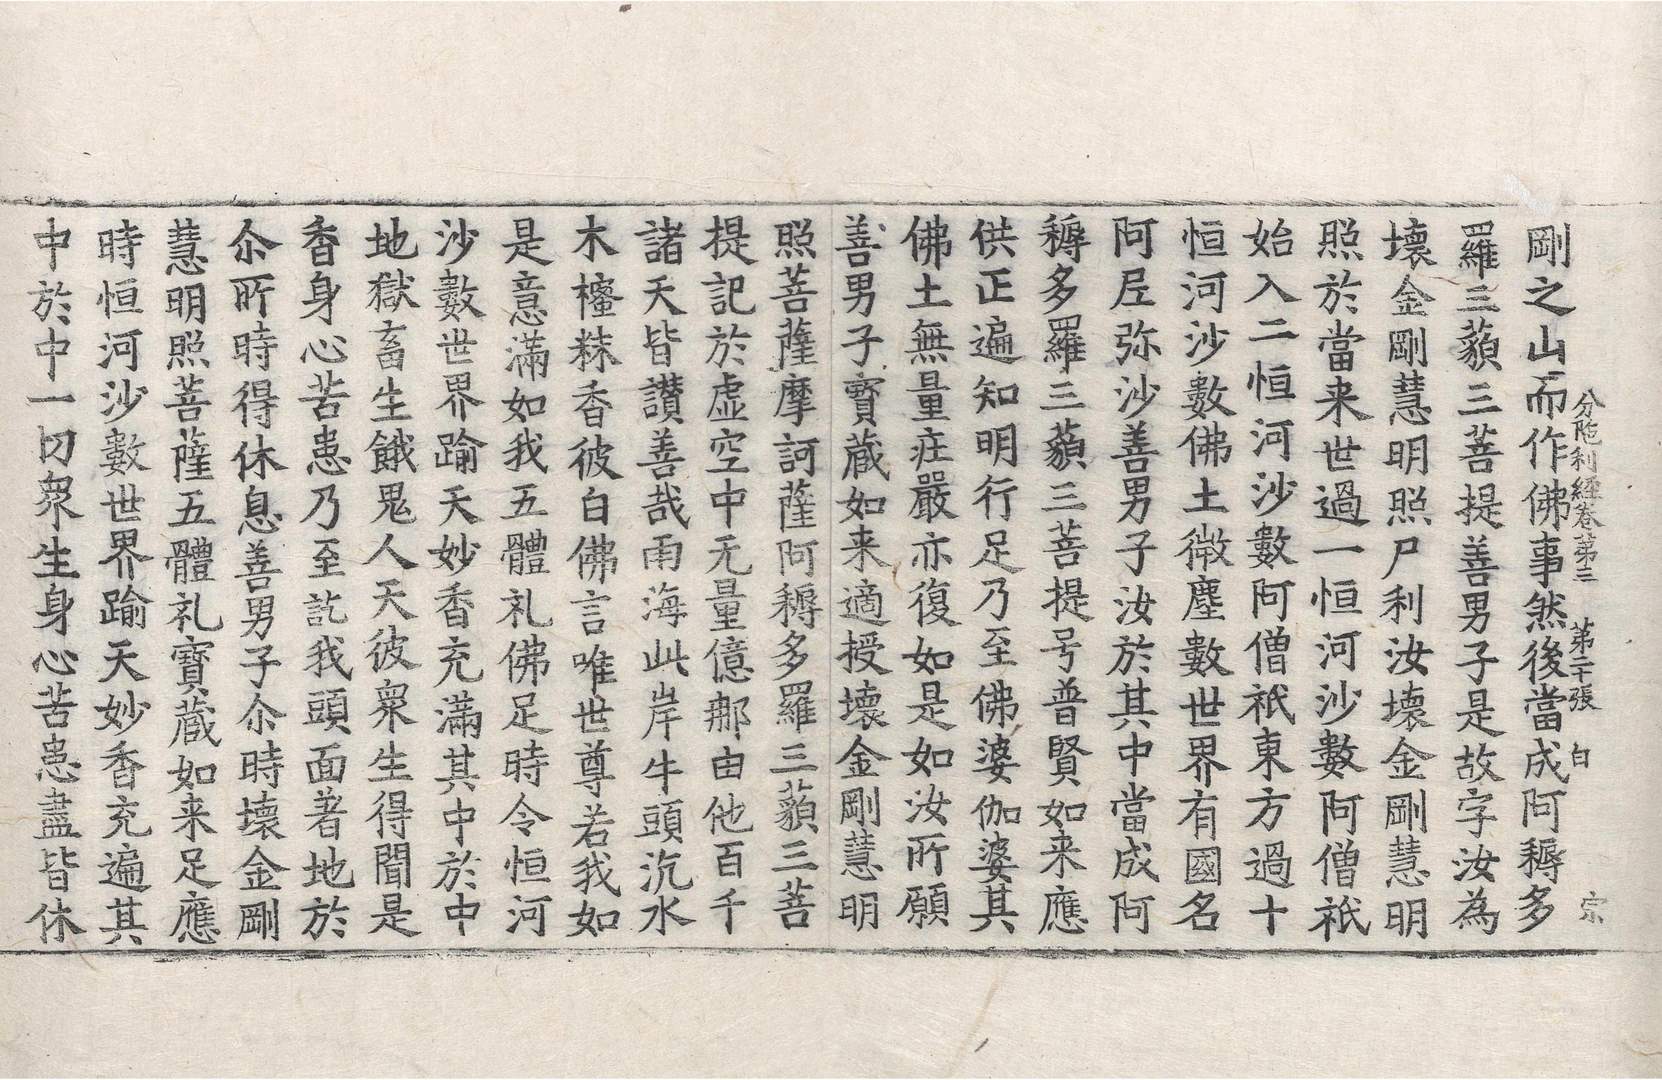 分陁利經卷第三　第二十張　白　宗
剛之山而作佛事然後當成阿耨多
羅三藐三菩提善男子是故字汝為
壞金剛慧明照尸利汝壞金剛慧明
照於當来世過一恒河沙數阿僧祇
始入二恒河沙數阿僧祇東方過十
恒河沙數佛土微塵數世界有國名
阿𡰱弥沙善男子汝於其中當成阿
耨多羅三藐三菩提号普賢如来應
供正遍知明行足乃至佛婆伽婆其
佛土無量庄嚴亦復如是如汝所願
善男子寶藏如来適授壞金剛慧明
照菩薩摩訶薩阿耨多羅三藐三菩
提記於虛空中无量億那由他百千
諸天皆讃善哉雨海此岸牛頭沉水
木櫁秣香彼白佛言唯世尊若我如
是意滿如我五體礼佛足時令恒河
沙數世界踰天妙香充滿其中於中
地獄畜生餓鬼人天彼衆生得聞是
香身心苦患乃至訖我頭面著地於
尒所時得休息善男子尒時壞金剛
慧明照菩薩五體礼寶藏如来足應
時恒河沙數世界踰天妙香充遍其
中於中一切衆生身心苦患盡皆休